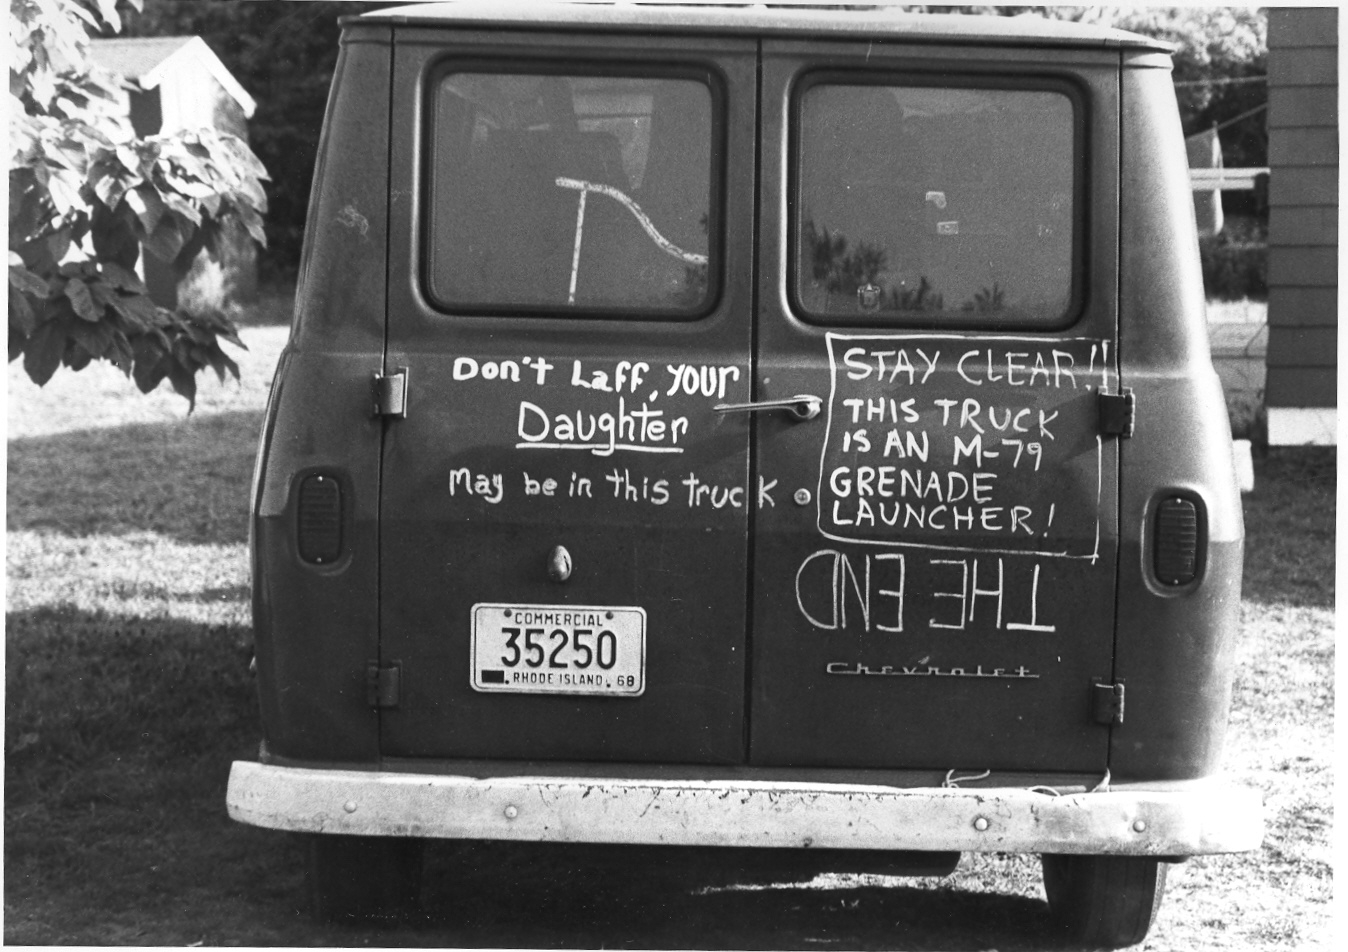 Don't Laff, Your
Daughter
May be in this truck
STAY CLEAR!!
THIS TRUCK
IS AN M-79
GRENADE
LAUNCHER!
THE END
Chevrolet
COMMERCIAL
35250
RHODE ISLAND. 68